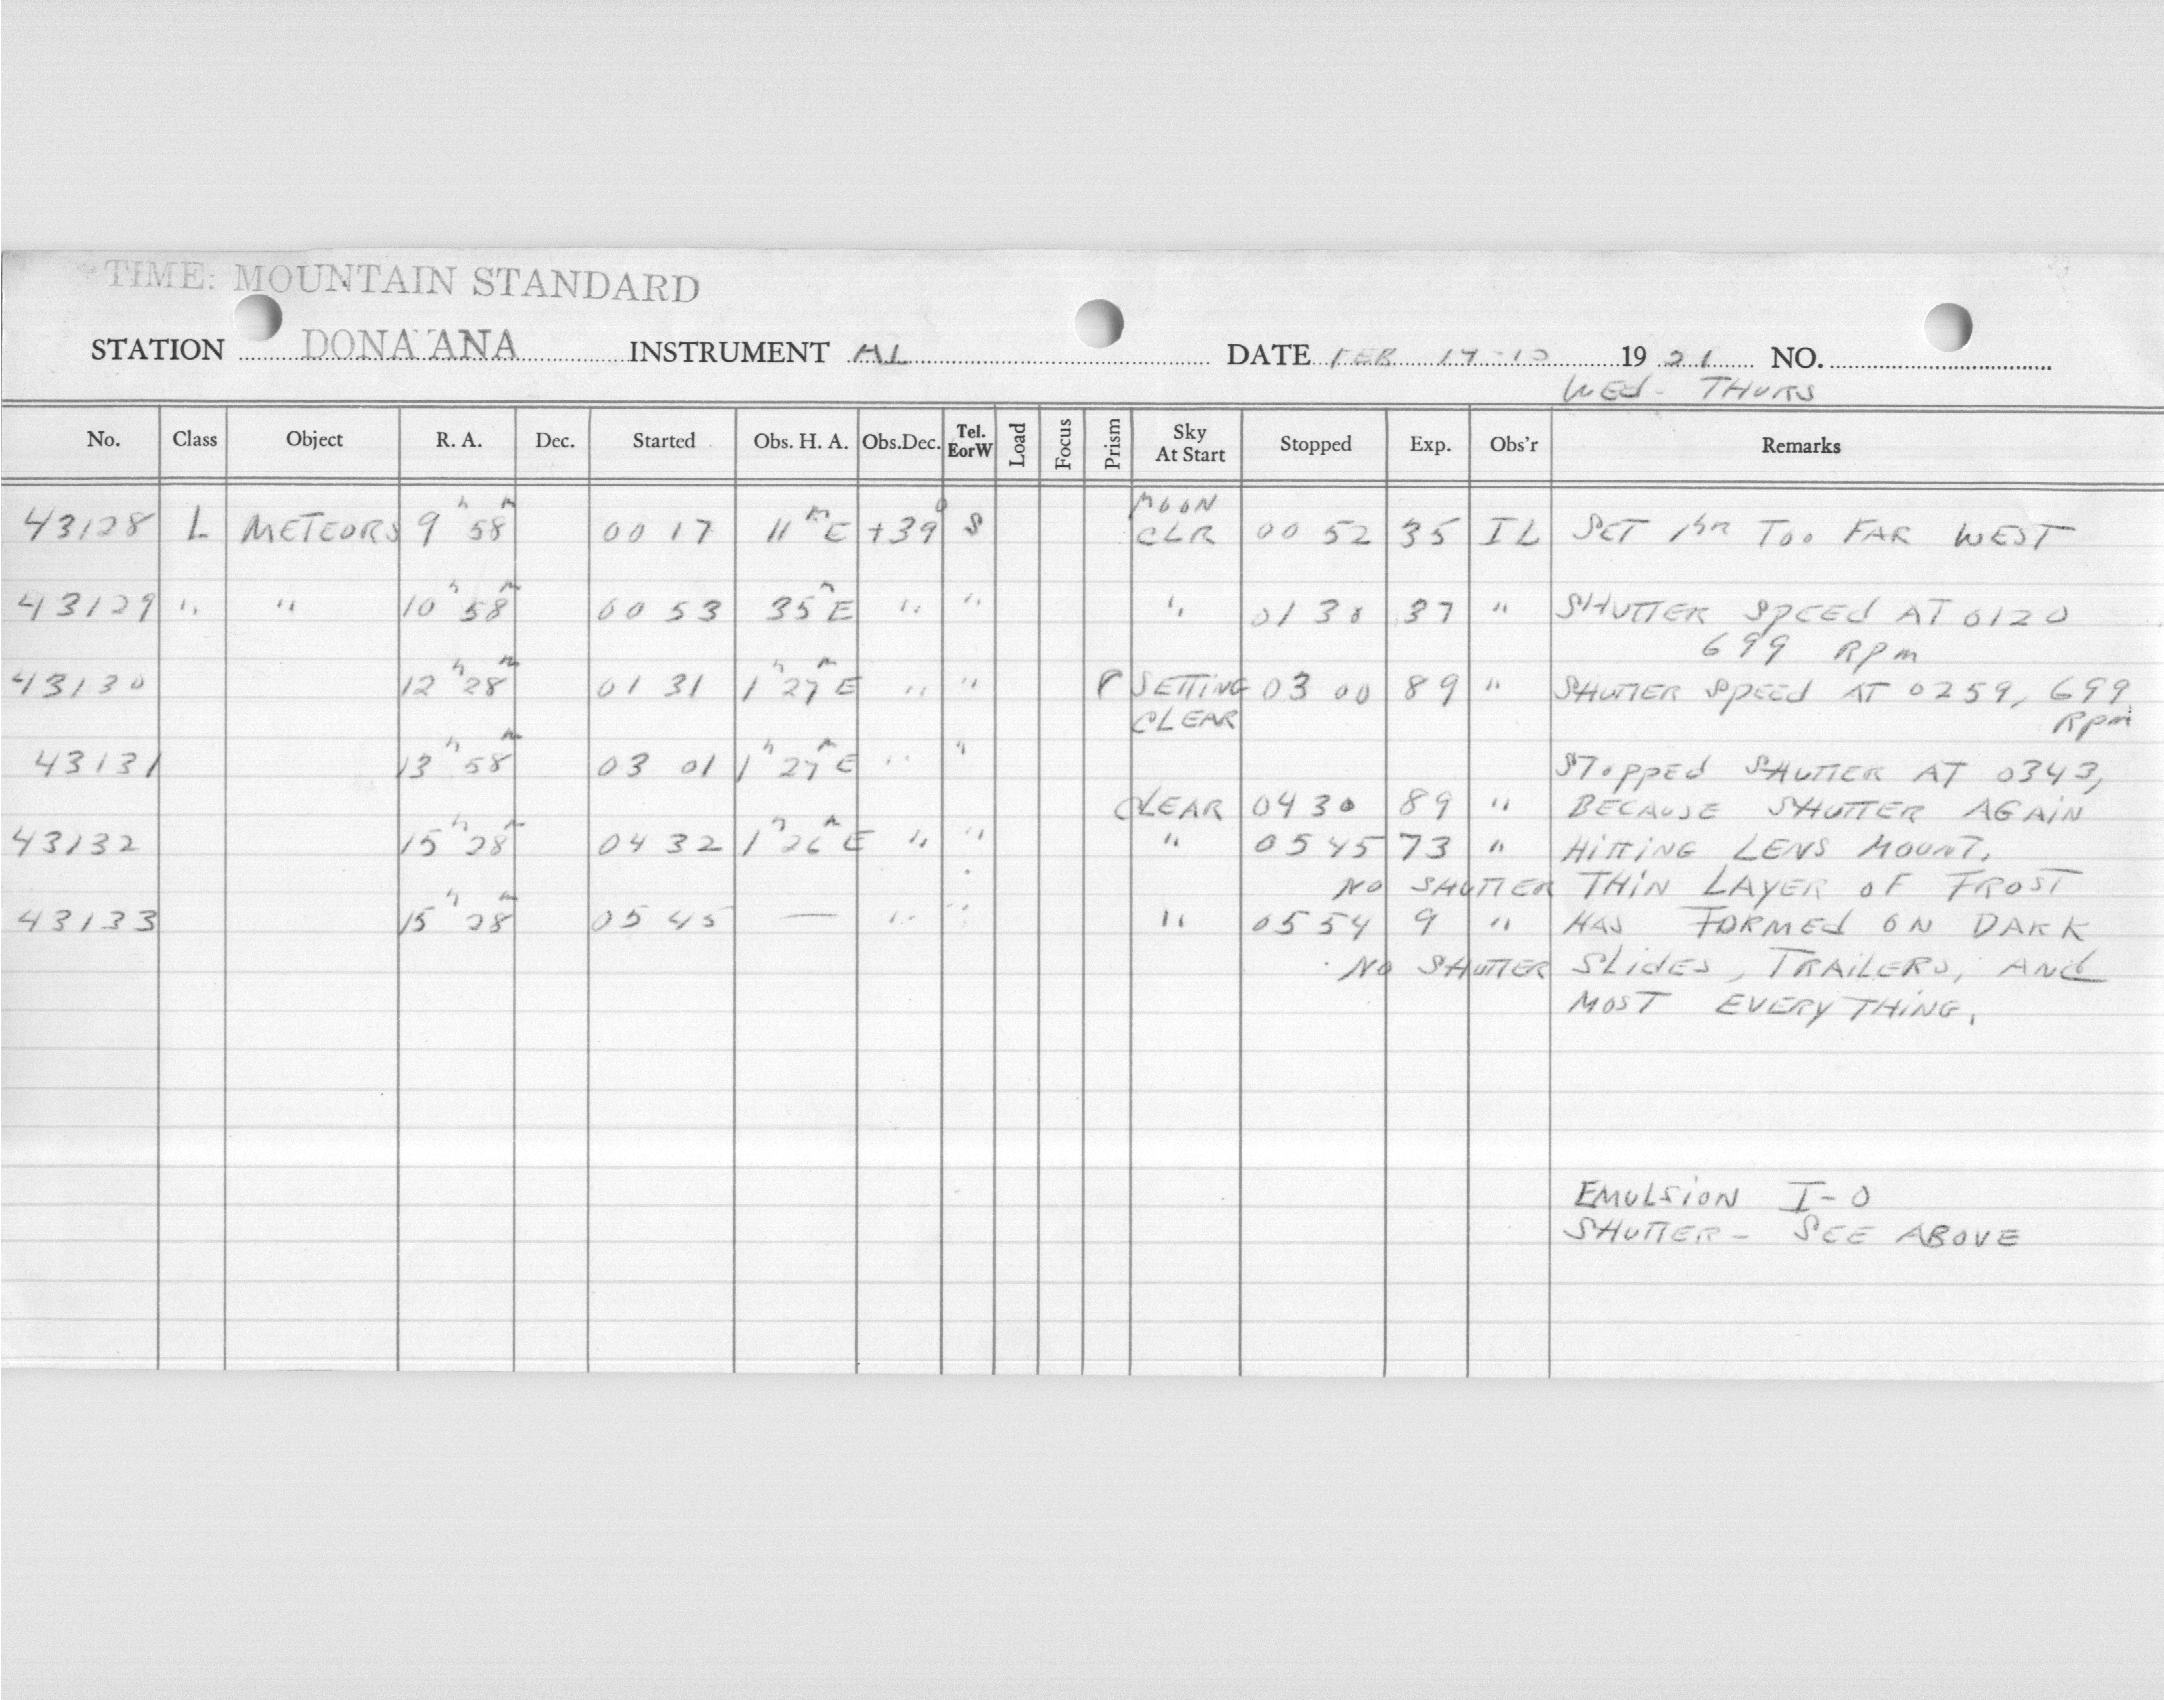 TIME: MOUNTAIN STANDARD
STATION DONA ANA INSTRUMENT AL DATE FEB 14-15 19 51 NO.
WEd - THURS
No. Class Object R. A. Dec. Started Obs. H. A. Obs.Dec. Tel. EorW Load Focus Prism Sky At Start Stopped Exp. Obs'r Remarks
43128 L METEORS 9h 58m 00 17 11m E +39° S MOON CLR 00 52 35 IL SET 1hr Too FAR WEST
43129 " " 10h 58m 00 53 35m E " " " 01 30 37 " SHUTTER SpEEd AT 0120
699 Rpm
43130 12h 28m 01 31 1h 27m E " " SETTING 03 00 89 " SHUTTER SpEEd AT 0259, 699
CLEAR Rpm
43131 13h 58m 03 01 1h 27m E " " STopped SHUTTER AT 0343,
CLEAR 04 30 89 " BECAUSE SHUTTER AGAiN
43132 15h 28m 04 32 1h 26m E " " " 05 45 73 " HiTTiNG LENS MOUNT.
NO SHUTTER THiN LAYER OF FROST
43133 15h 28m 05 45 — " " " 05 54 9 " HAS FORMEd ON DARK
NO SHUTTER SLidES, TRAiLERS, ANd
MOST EVERYTHiNG.
EMULSiON I-O
SHUTTER - SEE ABOVE